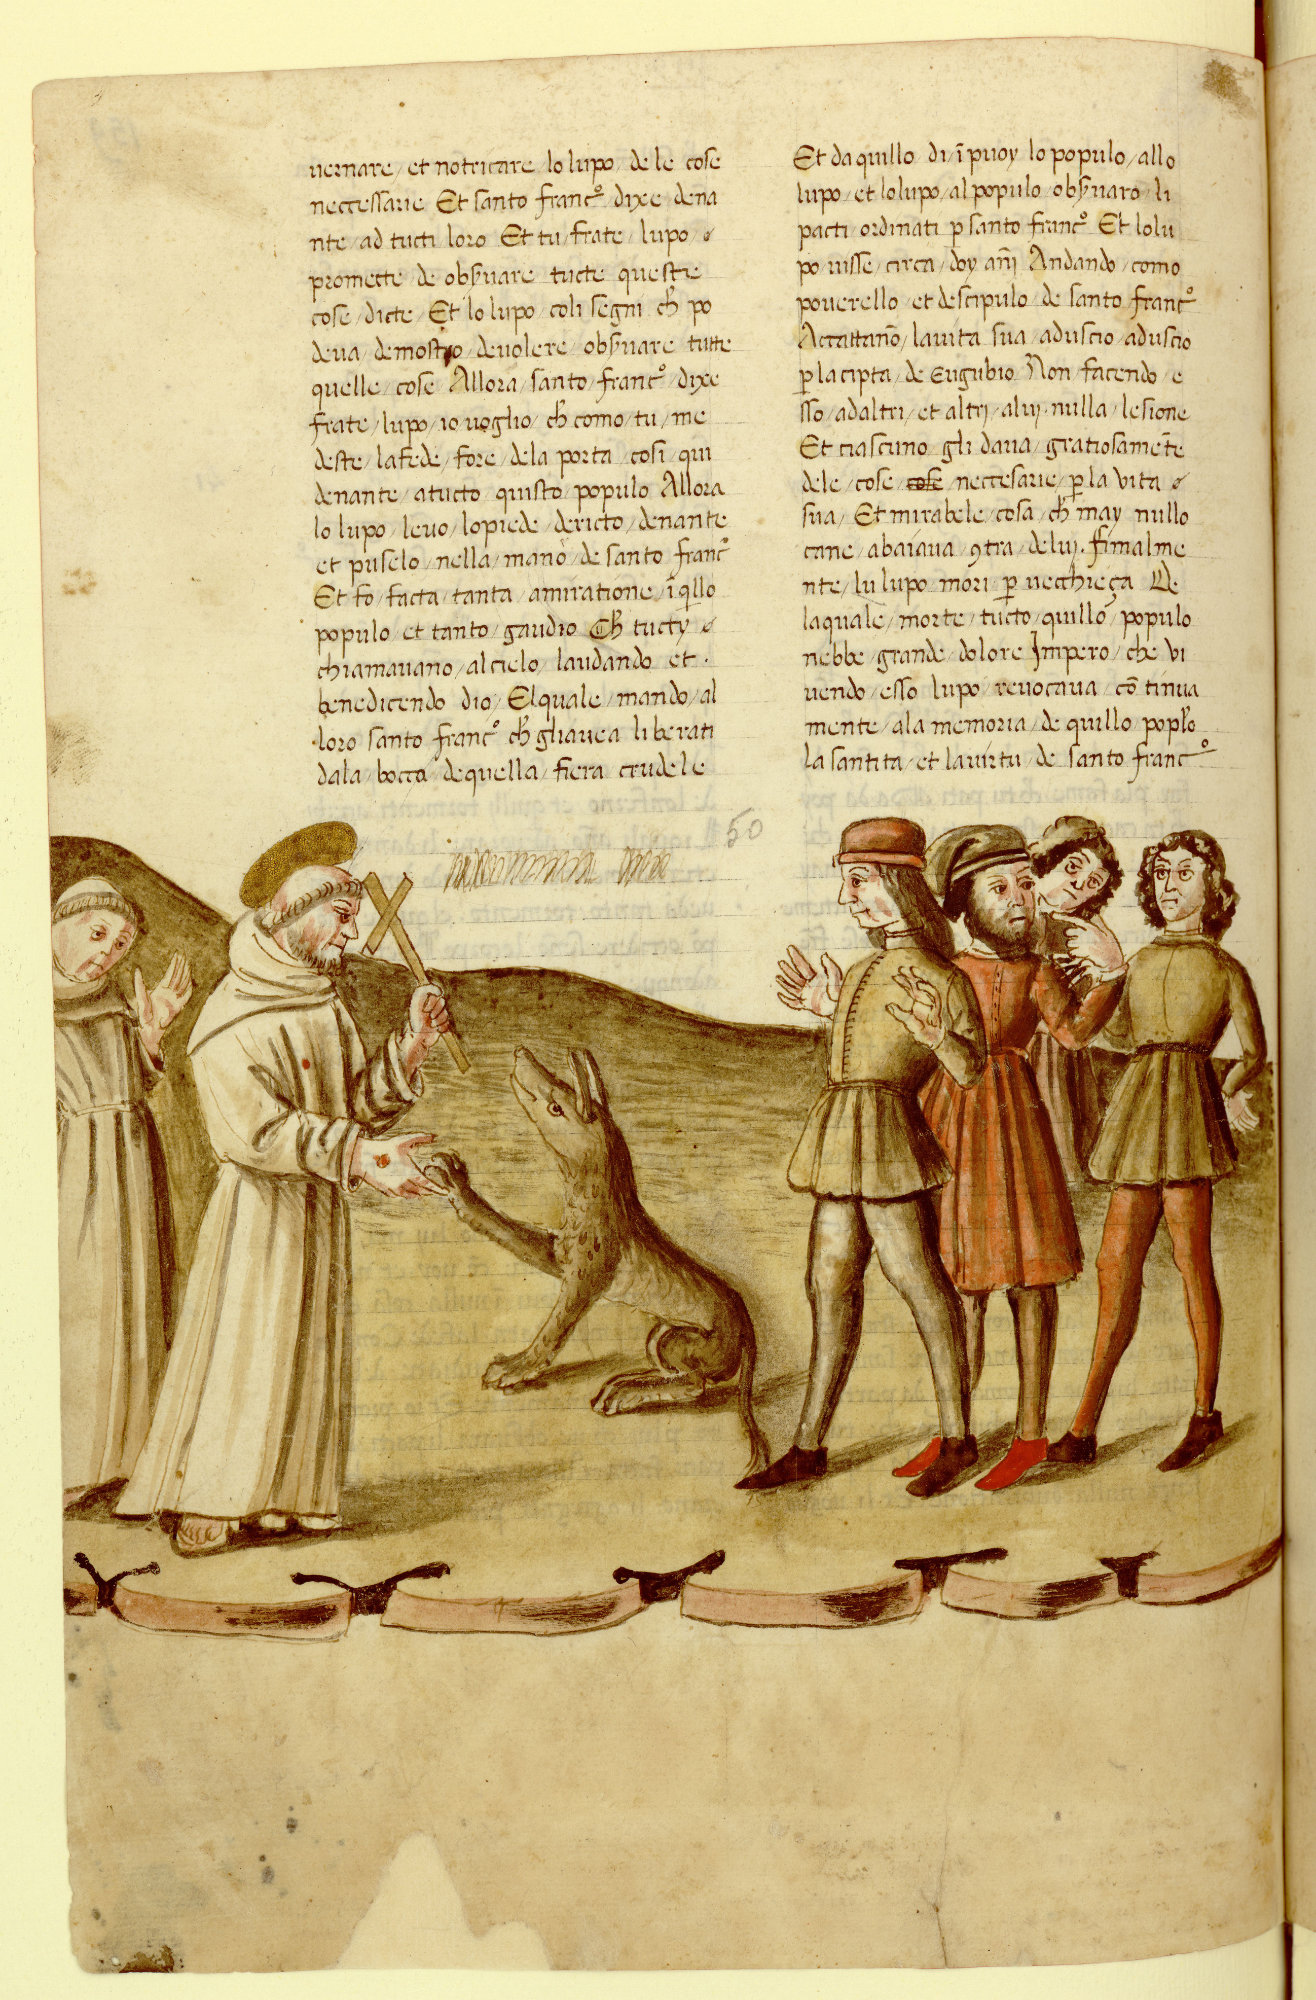 vernare / et notricare / lo lupo / de le cose
neccessarie Et santo franc.º dixe dena
nte / ad tucti loro Et tu / frate / lupo /
promecte de obs̄vare tucte queste
cose / dicte / Et lo lupo / coli segni ch̄ po
deva / demostro / devolere / obs̄vare tutte
quelle / cose Allora / santo / franc.º / dixe
frate / lupo / io voglio / ch̄ como / tu / me
deste / lafede / fore / dela porta cosi / qui
denante / atucto quisto / populo Allora
lo lupo / levo / lopiede / dericto / denante
et puselo / nella / mano / de santo franc.º
Et fo / facta / tanta / amiratione / ī q̄llo
populo et tanto / gaudio Ch̄ tucty
chiamavano / alcielo / laudando et.
benedicendo dio / Elquale / mando / al
loro santo franc.º ch̄ gliavea liberati
dala / bocca / dequella / fiera crudele
50
Et daquillo di / ī puoy lo populo / allo
lupo / et lolupo / alpopulo obs̄varo / li
pacti / ordinati p̲ santo franc.º Et lolu
po / visse / circa / doy ān̄i Andando / como
poverello / et descipulo / de santo franc.º
Accattan̄o / lavita sua / aduscio / aduscio
p̲ la cipta / de Eugubio Non / facendo / e
sso / adaltri / et altri / alui / nulla / lesione
Et ciascuno gli dava / gratiosamen̄te
dele / cose cose neccesarie / p̲ la vita
sua / Et mirabele / cosa / ch̄ may nullo
cane / abaiava / 9tra / delui. fimalme
nte / lu lupo mori p̲ vecchieça De
laquale / morte / tucto / quillo / populo
nebbe / grande / dolore Impero / che vi
vendo / esso lupo / revocava cōtinua
mente / ala memoria / de quillo popl̄o
la santita / et lavirtu / de santo franc.º